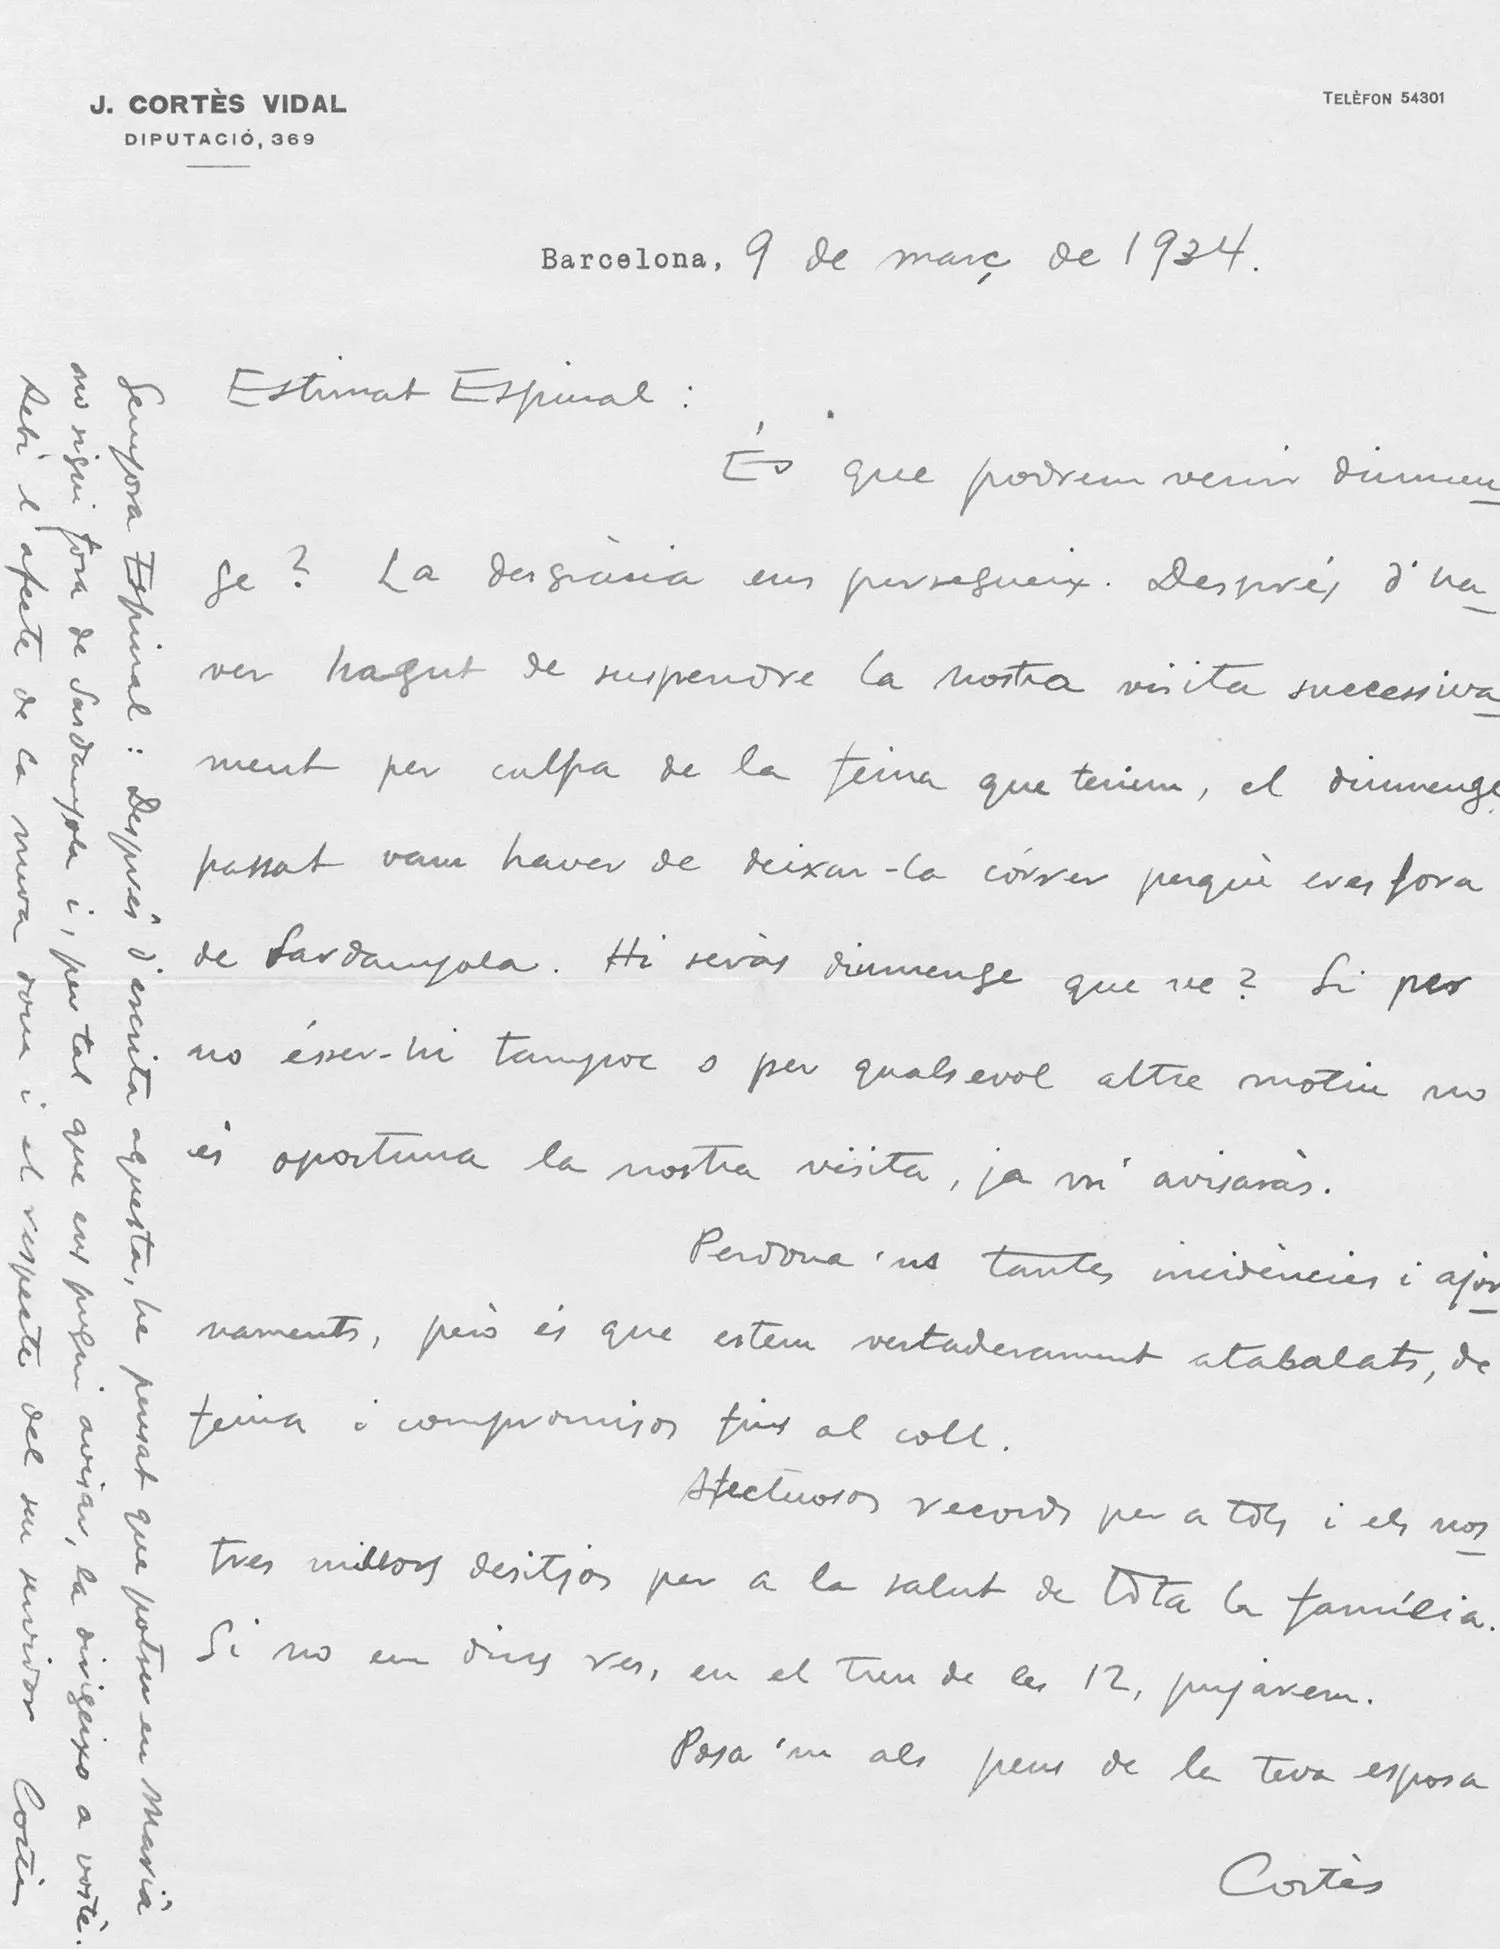 J. CORTÈS VIDAL
DIPUTACIÓ, 369
TELÈFON 54301
Barcelona, 9 de març de 1934.
Estimat Espinal :
És que podrem venir diumen-
ge? La desgràcia ens persegueix. Després d'ha-
ver hagut de suspendre la nostra visita successiva-
ment per culpa de la feina que teniem, el diumenge
passat vam haver de deixar-la córrer perquè eres fora
de Sardanyola. Hi seràs diumenge que ve? Si per
no ésser-hi tampoc o per qualsevol altre motiu no
és oportuna la nostra visita, ja m'avisaràs.
Perdona'ns tantes incidències i ajor-
naments, però és que estem vertaderament atabalats, de
feina i compromisos fins al coll.
Afectuosos records per a tots i els nos-
tres millors desitjos per a la salut de tota la família.
Si no em dius res, en el tren de les 12, pujarem.
Posa'm als peus de la teva esposa
Cortès
Senyora Espinal : Després d'escrita aquesta, he pensat que potser en Marià
no sigui fora de Sardanyola i, per tal que ens pugui avisar, la dirigeixo a vostè.
Rebi l'afecte de la meva dona i el respecte del seu servidor Cortès